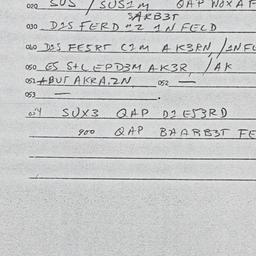 020 SUS / SUSIM QAP WOXAF
SARB3T
030 DIS FERD "2 IN FELD
040 DIS FE5RT CIM A K3RN / INFL
050 ES S+L EPD3M AK3R / AK
051 +BUT AKRA.2N 052 —
053 — .
054 SUX3 QAP DI E53RD
900 QAP BAARB3T FE